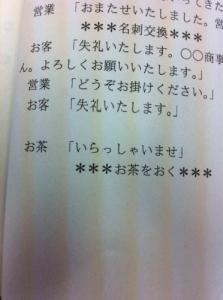 営業 「おまたせいたしました。営
＊＊＊名刺交換＊＊＊
お客 「失礼いたします。〇〇商事
ん。よろしくお願いいたします。」
営業 「どうぞお掛けください。」
お客 「失礼いたします。」
お茶 「いらっしゃいませ」
＊＊＊お茶をおく＊＊＊